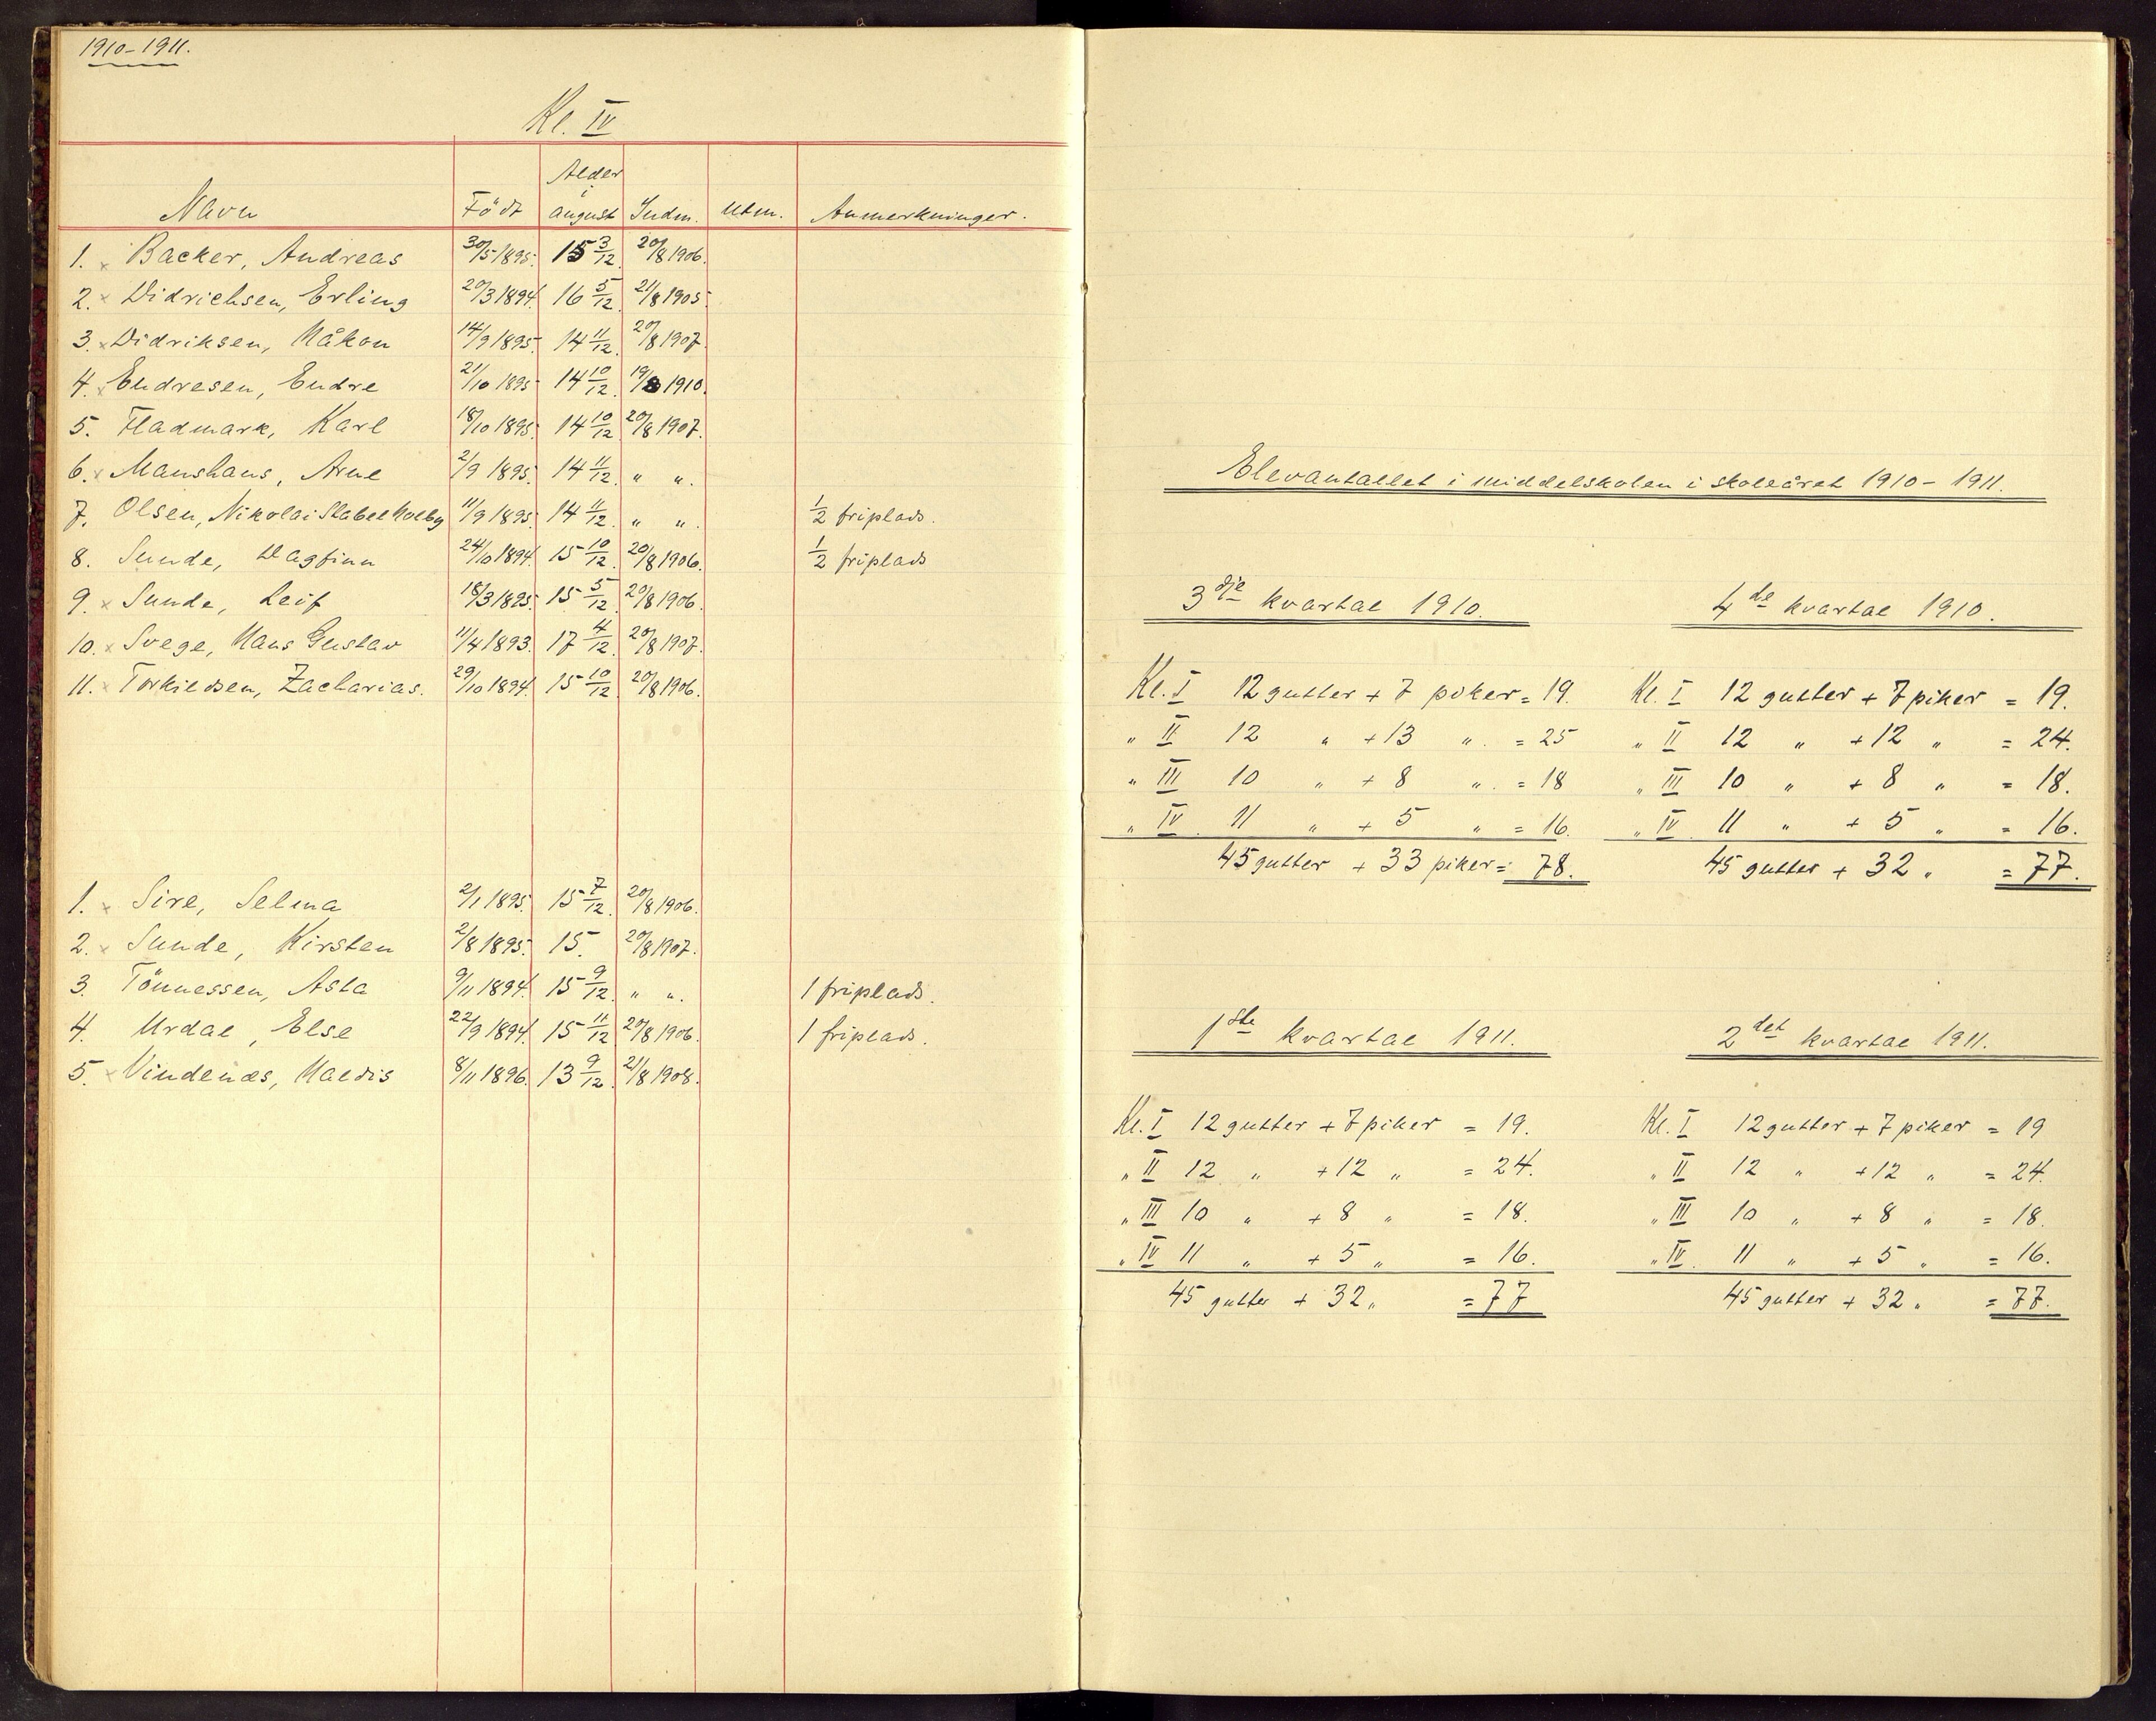 1910-1911.
Kl. IV
Navn Födt Alder i august Indm. Utm. Anmerkninger.
1. x Backer, Andreas 30/5 1895. 15 3/12. 20/8 1906.
2. x Didrichsen, Erling 20/3 1894. 16 5/12. 21/8 1905.
3. x Didriksen, Håkon 14/9 1895. 14 11/12. 20/8 1907.
4. x Endresen, Endre 21/10 1895 14 10/12. 19/8 1910.
5. Fladmark, Karl 18/10 1895. 14 10/12. 20/8 1907.
6. x Manshaus, Arne 2/9 1895. 14 11/12. " ".
7. Olsen, Nikolai Stabell 11/9 1895. 14 11/12. " ". 1/2 friplads.
8. Sunde, Dagfinn 24/10 1894. 15 10/12. 20/8 1906. 1/2 friplads
9. x Sunde, Leif 18/3 1895. 15 5/12. 20/8 1906.
10. x Svege, Hans Gustav 11/4 1893. 17 4/12. 20/8 1907.
11. x Torkildsen, Zacharias. 29/10 1894. 15 10/12. 20/8 1906.
1. x Sire, Selma 2/1 1895. 15 7/12. 20/8 1906.
2. x Sunde, Kirsten 2/8 1895. 15. 20/8 1907.
3. Tönnessen, Asta 9/11 1894. 15 9/12. " ". 1 friplads.
4. Urdal, Else 22/9 1894. 15 11/12 20/8 1906. 1 friplads.
5. x Vindenæs, Haldis 8/11 1896. 13 9/12. 21/8 1908.
Elevantallet i middelskolen i skoleåret 1910-1911.
3dje kvartal 1910.
Kl. I 12 gutter + 7 piker = 19.
" II 12 " + 13 ". = 25
" III 10 " + 8 ". = 18
" IV. 11 " + 5 " = 16.
45 gutter + 33 piker = 78.
4de kvartal 1910.
Kl. I 12 gutter + 7 piker = 19.
" II 12 " + 12 " = 24.
" III 10 " + 8 " = 18.
" IV. 11 " + 5 " = 16.
45 gutter + 32 " = 77.
1ste kvartal 1911.
Kl. I 12 gutter + 7 piker = 19.
" II 12 " + 12 " = 24.
" III 10 " + 8 " = 18.
" IV 11 " + 5 " = 16.
45 gutter + 32 " = 77
2det kvartal 1911.
Kl. I 12 gutter + 7 piker = 19
" II 12 " + 12 " = 24.
" III 10 " + 8 " = 18.
" IV. 11 " + 5 " = 16.
45 gutter + 32 " = 77.